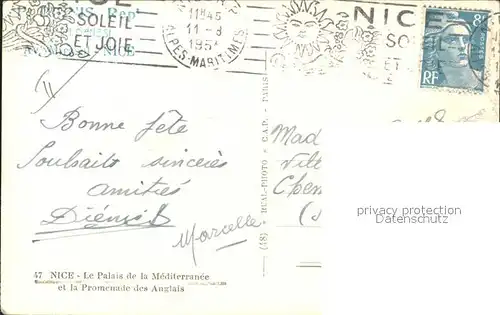 NICE
SOLEIL
ET JOIE
1145
11-8
195
ALPES-MARITIMES
NICE
SO
ET
8F
RF
Bonne fête
Souhaits sincères
amitiés
Marcelle
Mad
Vill
Chem
(18) REAL-PHOTO • C.A.P. - PARIS
privacy protection
Datenschutz
47 NICE - Le Palais de la Méditerranée
et la Promenade des Anglais